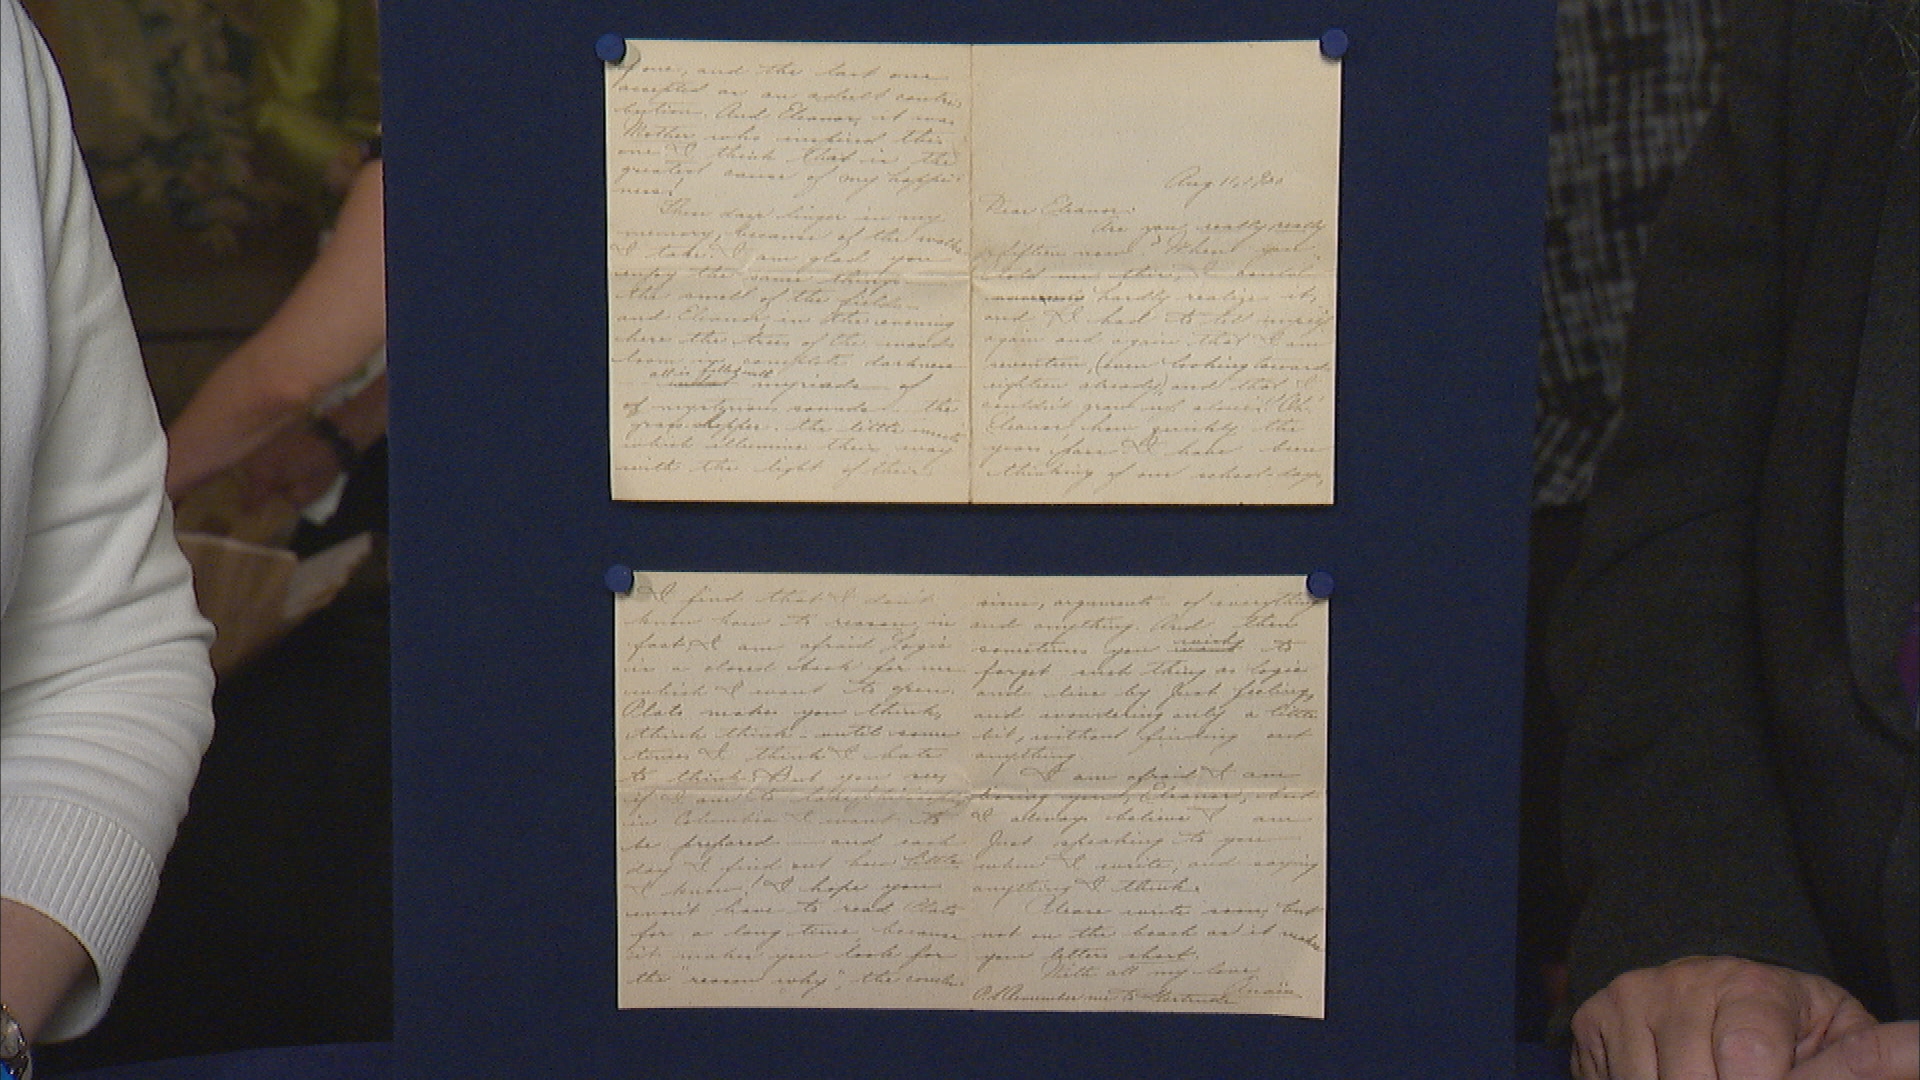 Aug. 11, 1920
Dear Eleanor:
Are you really really
fifteen now? When you
told me this, I could
hardly realize it,
and I had to tell myself
again and again that I am
seventeen, (even looking towards
eighteen already) and that I
couldn't grow up slower! Oh!
Eleanor, how quickly the
years pass. I have been
thinking of our school-days,
gone, and the last one
accepted as an adult contri-
bution. And Eleanor, it was
Mother who inspired this
one. I think that is the
greatest cause of my happi-
ness!
These days linger in my
memory, because of the walks
I take. I am glad you
enjoy the same things
the smell of the fields
and Eleanor, in the evening
when the trees of the woods
loom in complete darkness
all is filled with
myriads of
of mysterious sounds. the
grasshopper. the little insects
which illumine their way
with the light of their
I find that I don't
know how to reason, in
fact I am afraid Logic
is a closed book for me
which I want to open.
Plato makes you think,
think think - until some
times I think I hate
to think. But you see
if I am to take Philosophy
in Columbia I want to
be prepared - and each
day I find out how little
I know! I hope you
won't have to read Plato
for a long time, because
it makes you look for
the "reason why", the conclu-
sions, arguments of everything
and anything. And then
sometimes you wish to
forget such thing as logic
and live by just feeling,
and wondering only a little
bit, without finding out
anything
I am afraid I am
boring you, Eleanor, but
I always believe I am
Just speaking to you
when I write, and saying
anything I think.
Please write soon, but
not on the beach as it makes
your letters short.
With all my love
Anaïs
P.S. Remember me to Gertrude